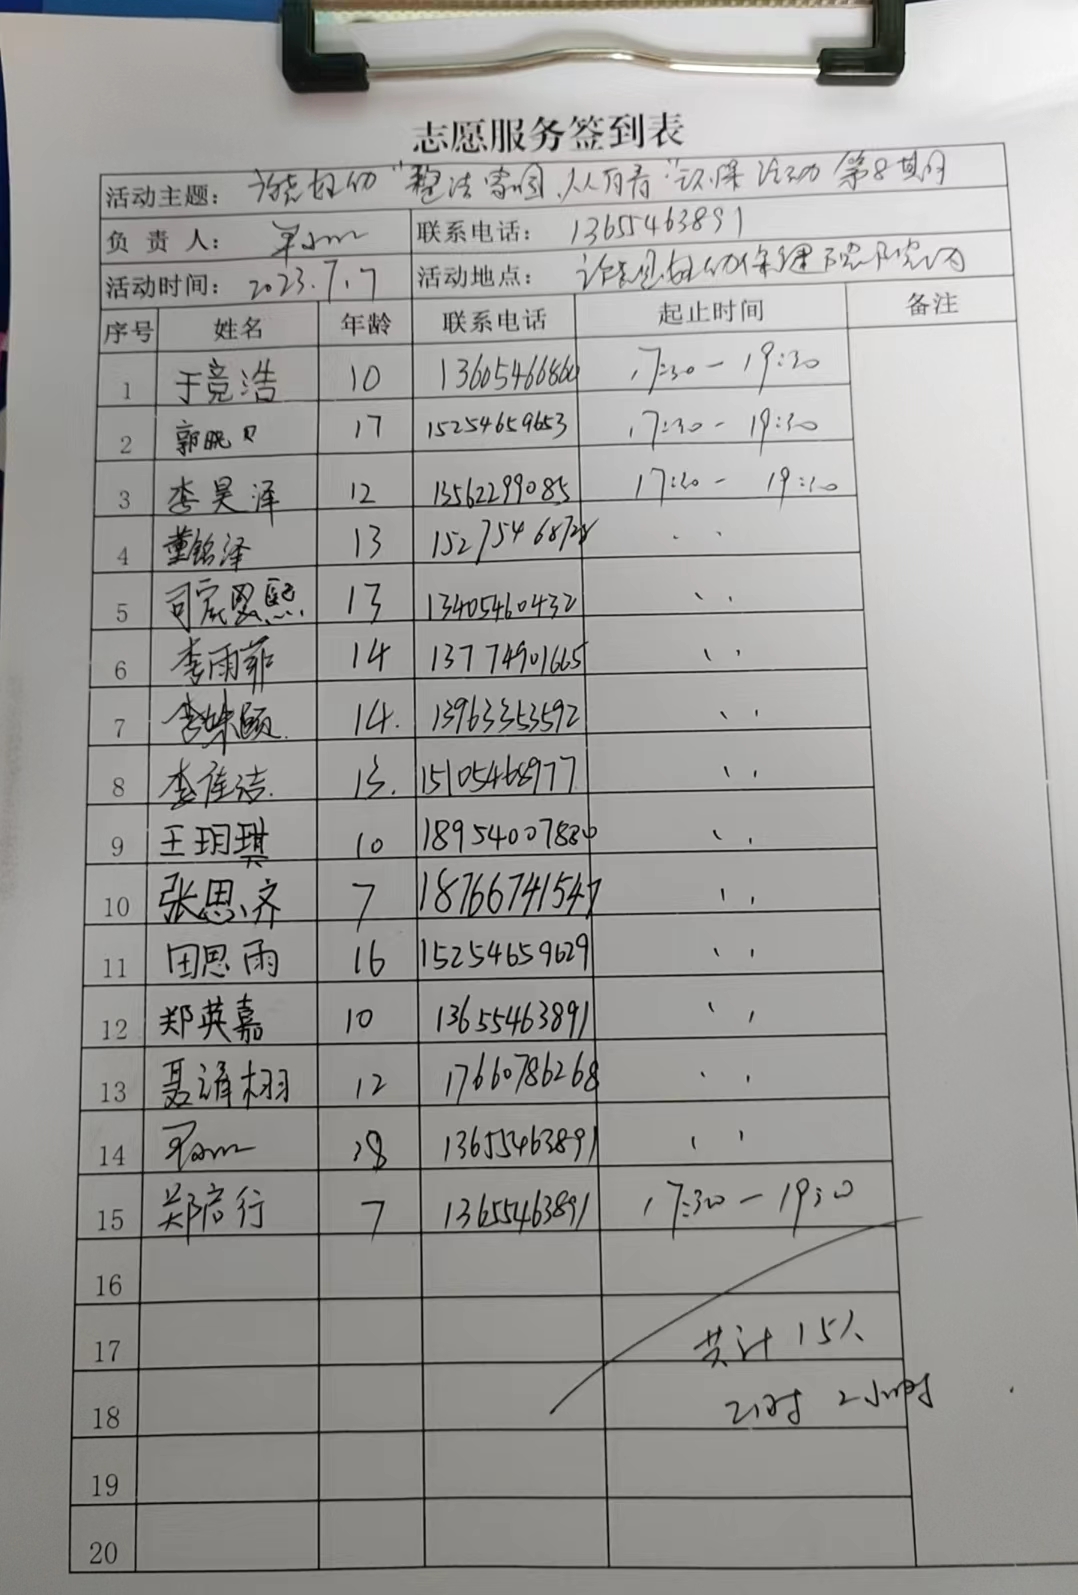 志愿服务签到表
活动主题： 妇幼 "整洁家园,人人有责" 活动 第8期
负责人： 联系电话： 13655463891
活动时间： 2023.7.7 活动地点： 妇幼保健院院内
序号 姓名 年龄 联系电话 起止时间 备注
1 于竞浩 10 1360546686 17:30-19:30
2 郭晓 17 15254659653 17:30-19:30
3 李昊泽 12 13562299085 17:30- 19:30
4 董铭泽 13 1527546872 、、
5 司宸恩熙 13 13405460432 、、
6 李雨菲 14 13774901665 、、
7 李姝颐 14. 13963353592 、、
8 李佳洁. 13. 15105468977 、、
9 王玥琪 10 18954007880 、、
10 张思济 7 18766741547 、、
11 田思雨 16 15254659629 、、
12 郑英嘉 10 13655463891 、、
13 聂诸栩 12 17660786268 、、
14 38 13655463891 、、
15 郑启行 7 13655463891 17:30-19:30
16
17 共计15人
18 用时 2小时
19
20